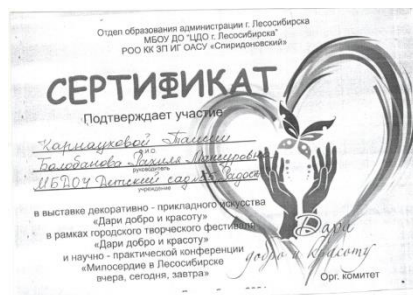 Отдел образования администрации г. Лесосибирска
МБОУ ДО "ЦДО г. Лесосибирска"
РОО КК ЗП ИГ ОАСУ «Спиридоновский»
СЕРТИФИКАТ
Подтверждает участие
Карнауховой Таисии
Ф.И.О.
Балобанова Рахиля Мансуровна
руководитель
МБДОУ Детский сад
учреждение
в выставке декоративно - прикладного искусства
«Дари добро и красоту»
в рамках городского творческого фестиваля
«Дари добро и красоту»
и научно - практической конференции
«Милосердие в Лесосибирске
вчера, сегодня, завтра»
Дари
добро и красоту
Орг. комитет